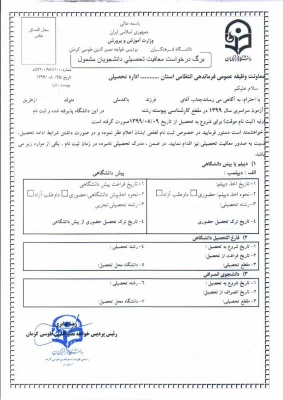 باسمه تعالی
جمهوری اسلامی ایران
وزارت آموزش و پرورش
دانشگاه فرهنگیان
پردیس خواجه نصیر الدین طوسی کرمان
برگ درخواست معافیت تحصیلی دانشجویان مشمول
محل الصاق عکس
معاونت وظیفه عمومی فرماندهی انتظامی استان ............ اداره تحصیلی
سلام علیکم
با احترام، به آگاهی می رساند جناب آقای فرزند متولد
آزمون سراسری سال ۱۳۹۹ در مقطع کارشناسی پیوسته رشته در این دانشگاه پذیرفته شده و ثبت نام
اولیه (ثبت نام موقت) برای شروع به تحصیل از تاریخ ۱۳۹۹/۰۸/۰۹ صورت گرفته است.
خواهشمند است دستور فرمایید در خصوص ثبت نام قطعی ایشان اعلام نظر نموده و در صورت داشتن شرایط ادامه تحصیل،
نسبت به صدور معافیت تحصیلی نیز اقدام نمایید.
۱) دیپلم یا پیش دانشگاهی
الف : دیپلمه:
پیش دانشگاهی
۱- تاریخ اخذ دیپلم:
۲- نحوه اخذ دیپلم: حضوری داوطلب آزاد
۳- رشته تحصیلی:
۴- تاریخ ترک تحصیل حضوری
۱- تاریخ فراغت پیش دانشگاهی
۲- نحوه اخذ پیش دانشگاهی: حضوری داوطلب آزاد
۳- رشته تحصیلی: تجربی
۴- تاریخ ترک تحصیل حضوری از پیش دانشگاهی
۲) فارغ التحصیل دانشگاهی
۱- تاریخ شروع به تحصیل:
۲- تاریخ فراغت از تحصیل:
۳- مقطع تحصیلی:
۴- رشته تحصیلی:
۵- دانشگاه محل تحصیل:
۳) دانشجوی انصرافی
۱- تاریخ شروع به تحصیل:
۲- تاریخ انصراف از تحصیل:
۳- مقطع تحصیلی:
۶- رشته تحصیلی:
۷- دانشگاه محل تحصیل:
رئیس پردیس خواجه نصیر الدین طوسی کرمان